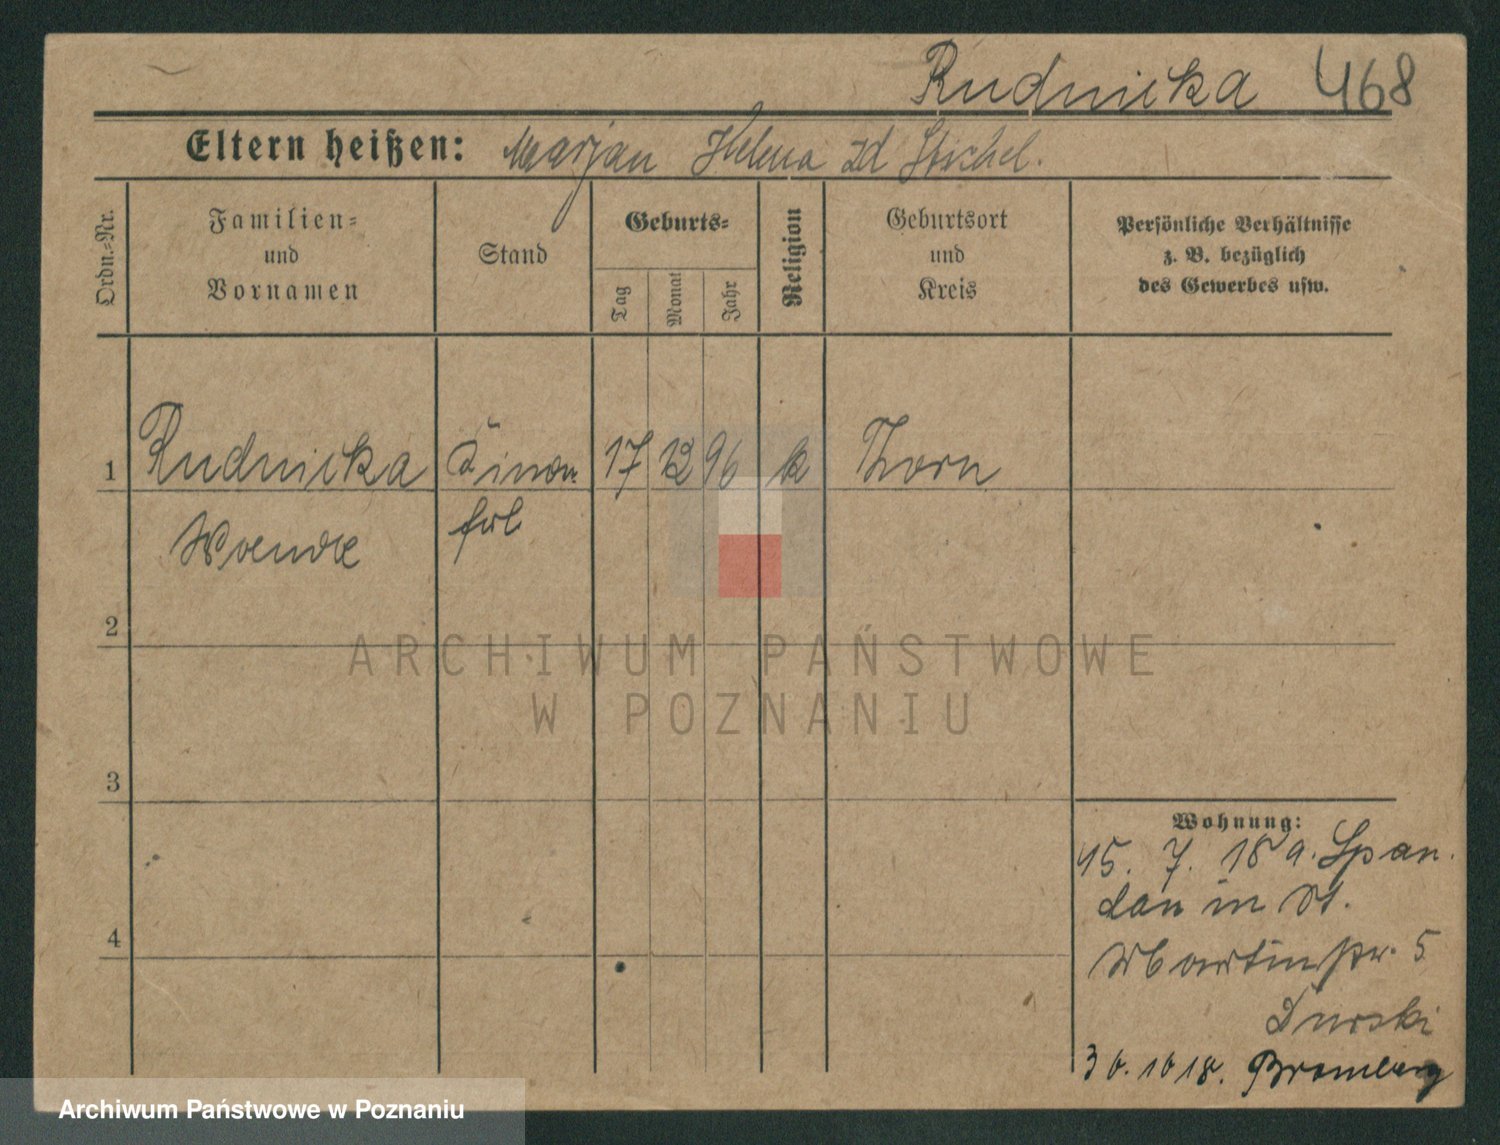 Rudnicka 468
Eltern heißen: Marjan Helena zd Stichel.
Ordn.-Nr.
Familien-
und
Vornamen
Stand
Geburts-
Tag
Monat
Jahr
Religion
Geburtsort
und
Kreis
Persönliche Verhältnisse
z. B. bezüglich
des Gewerbes usw.
1 Rudnicka 17 12 96 k Thorn
2
3
4
Wohnung:
15. 7. 18 a. Span.
dau in St.
Martinstr. 5
Durski
30. 10 18. Bromberg
ARCHIWUM PAŃSTWOWE
W POZNANIU
Archiwum Państwowe w Poznaniu